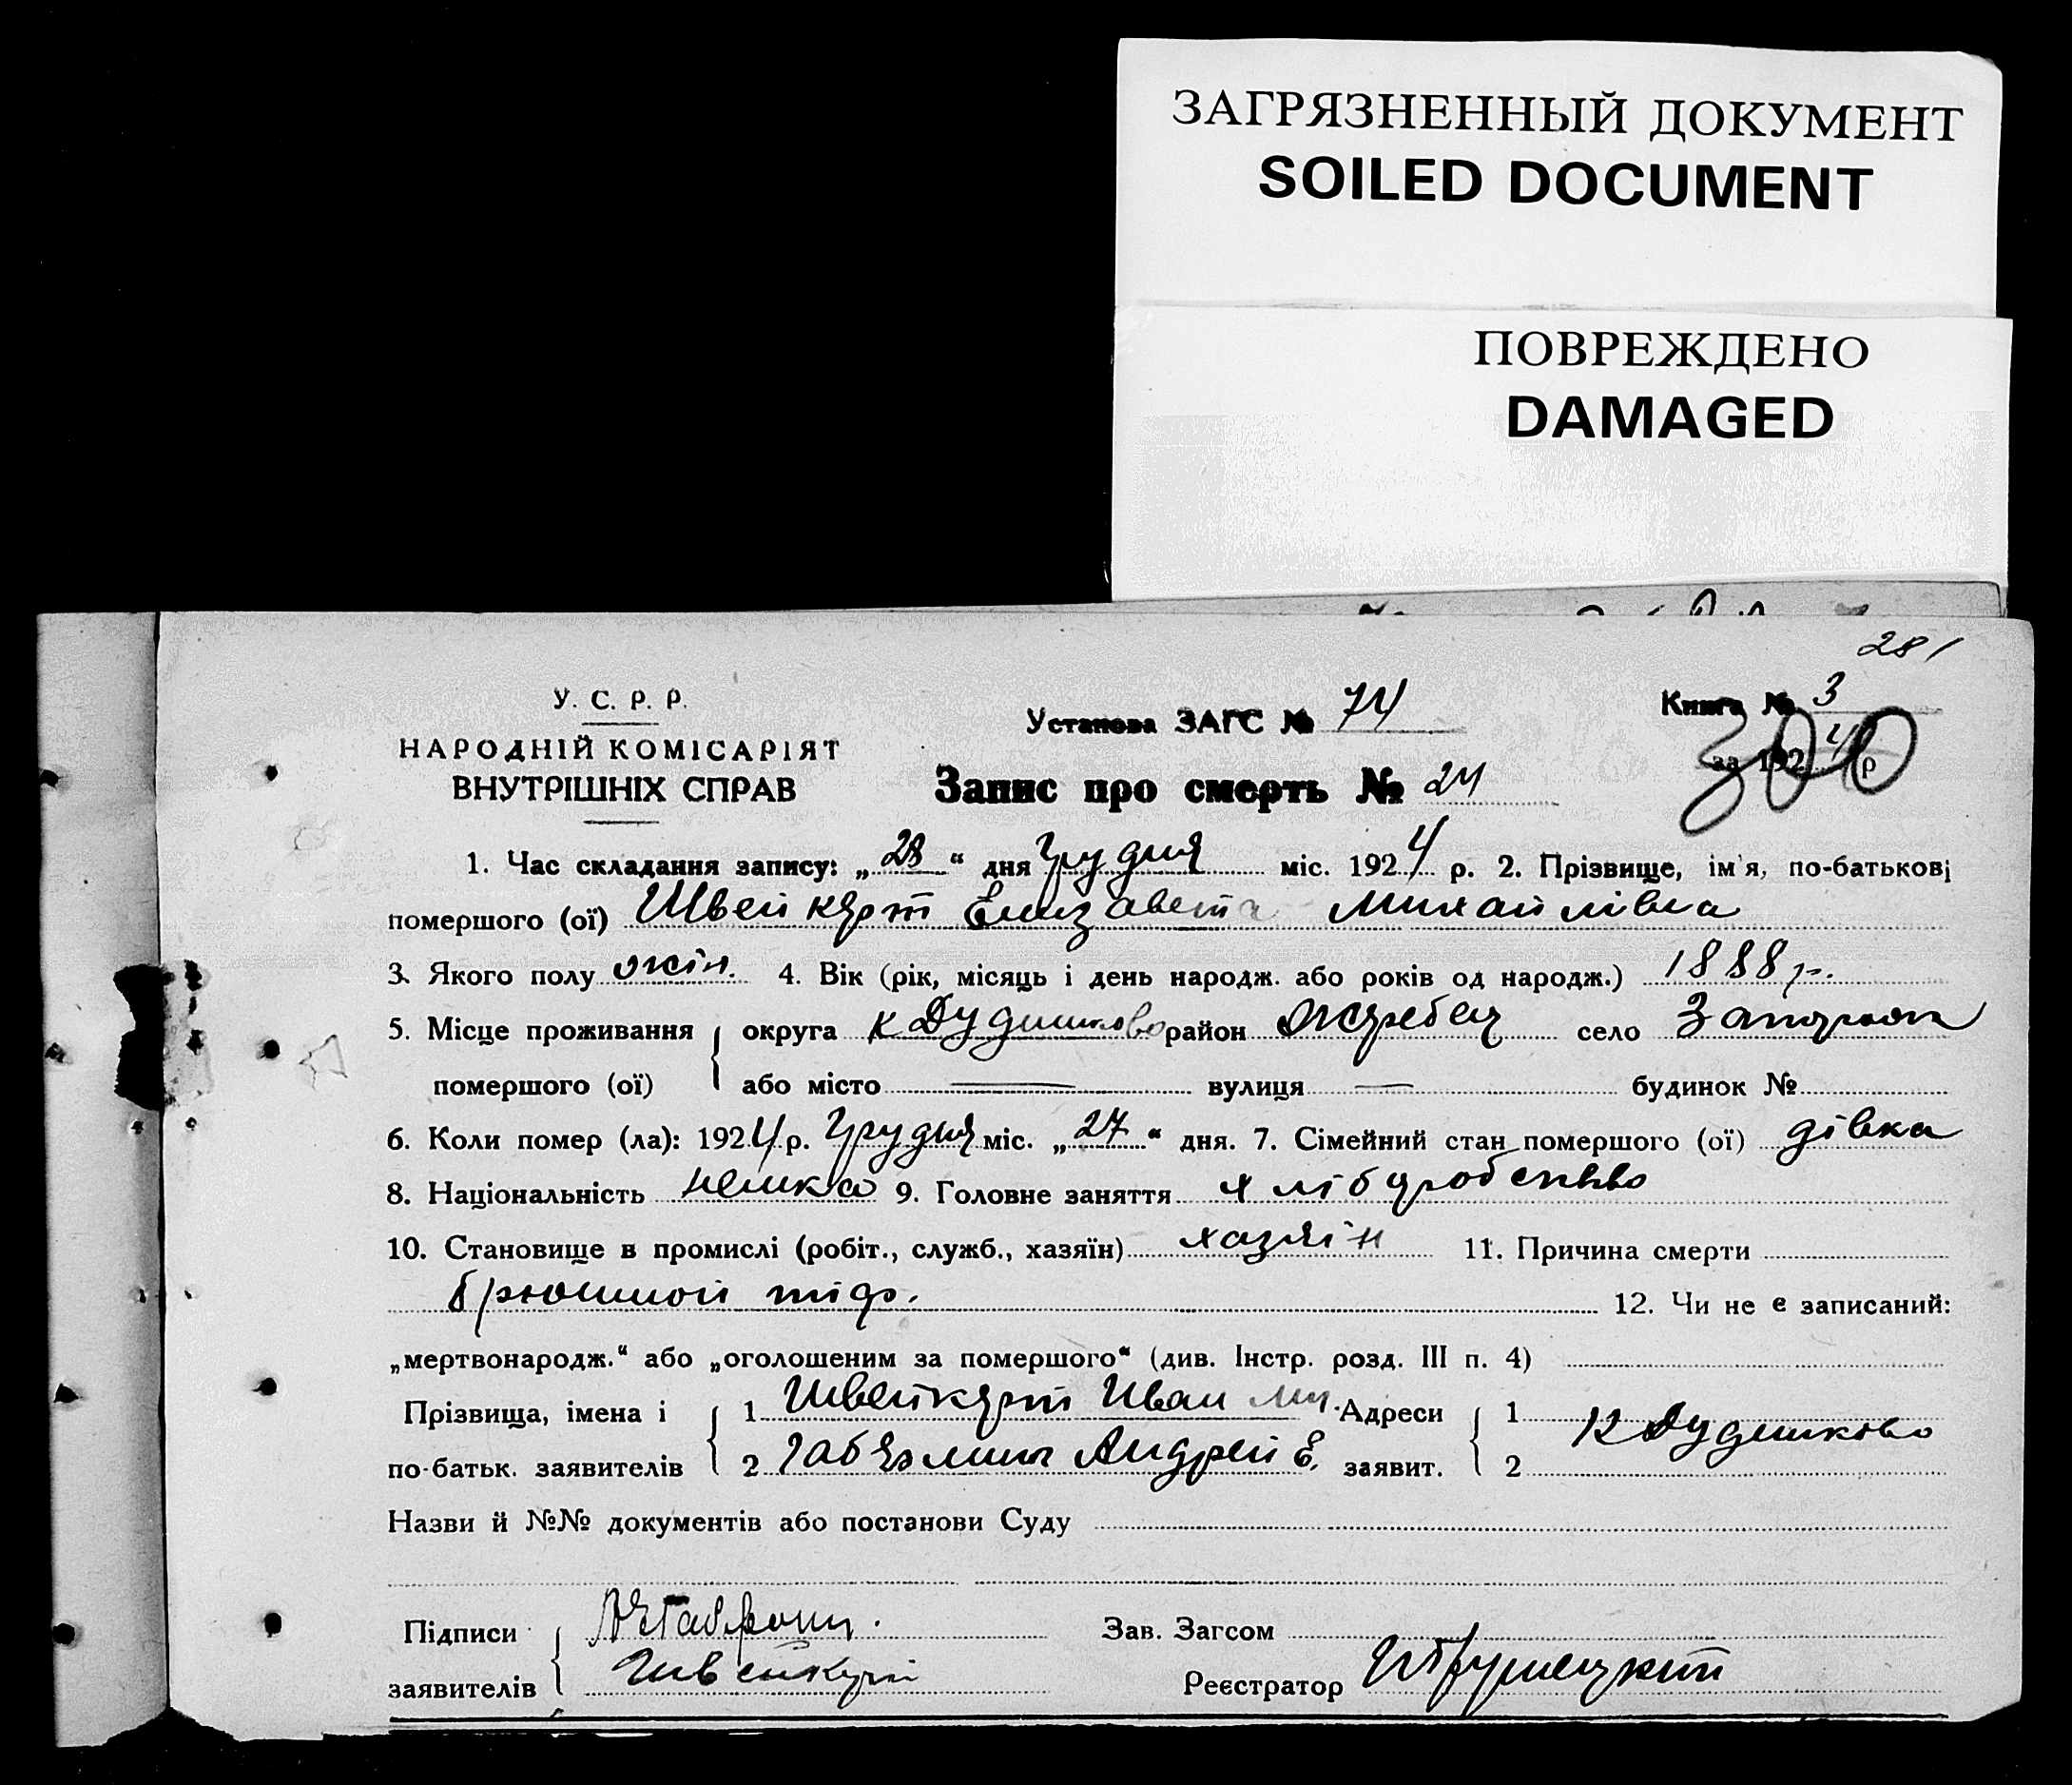 ЗАГРЯЗНЕННЫЙ ДОКУМЕНТ
SOILED DOCUMENT
ПОВРЕЖДЕНО
DAMAGED
281
У. С. Р. Р.
НАРОДНІЙ КОМІСАРІЯТ
ВНУТРІШНІХ СПРАВ
Установа ЗАГС № 74
Книга № 3
за 1924 р
300
Запис про смерть № 24
1. Час складання запису: „28“ дня Грудня міс. 1924 р. 2. Прізвище, ім'я, по-батькові
помершого (ої) Швейкерт Елизавета Михайлівна
3. Якого полу жін. 4. Вік (рік, місяць і день народж. або років од народж.) 1888 р.
5. Місце проживання округа к Дудниково район Жеребец село Запорож
помершого (ої) або місто вулиця будинок №
6. Коли помер (ла): 1924 р. Грудня міс. „27“ дня. 7. Сімейний стан помершого (ої) дівка
8. Національність немка 9. Головне заняття хліборобство
10. Становище в промислі (робіт., служб., хазяїн) хазяін 11. Причина смерти
брюшной тіф. 12. Чи не є записаний:
„мертвонародж.“ або „оголошеним за помершого“ (див. Інстр. розд. III п. 4)
Прізвища, імена і 1 Швейкерт Иван Ми. Адреси 1
по-батьк. заявителів 2 Андрей Е. заявит. 2 к Дудниково
Назви й №№ документів або постанови Суду
Підписи Зав. Загсом
заявителів Швейкерт Реєстратор